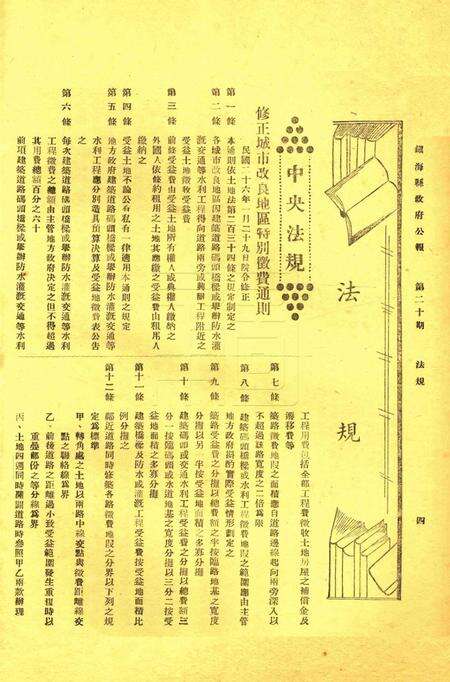 鎮海縣政府公報
第二十期
法規
四
法規
中央法規
修正城市改良地區特別徵費通則
民國二十六年一月二十九日院令修正
第一條 本通則依土地法第二百三十四條之規定制定之
第二條 各城市改良地區因建築道路碼頭橋樑或舉辦防水灌
溉交通等水利工程得向道路兩旁或興辦工程附近之
受益土地徵收受益費
第三條 前條受益費由受益土地所有權人或典權人繳納之
外國人依條約租用之土地其應繳之受益費由租用人
繳納之
第四條 受益土地不論公有私有一律適用本通則之規定
第五條 地方政府建築道路碼頭橋樑或舉辦防水灌溉交通等
水利工程應分別造具預算決算及受益地徵費表公告
之
第六條 每次建築道路碼頭橋樑或舉辦防水灌溉交通等水利
工程徵費之總額由主管地方政府決定之但不得超過
其用費總額百分之六十
前項建築道路碼頭橋樑或舉辦防水灌溉交通等水利
工程用費包括全部工程費徵收土地房屋之補償金及
遷移費等
第七條 築路徵費地段之面積應自道路邊線起向兩旁深入以
不超過該路寬度之二倍為限
第八條 建築碼頭橋樑或水利工程徵費地段之範圍應由主管
地方政府斟酌實際受益情形劃定之
第九條 築路受益費之分擔以總費額之半按臨路地基之寬度
分擔以另一半按受益地面積之多寡分擔
第十條 建築碼頭或交通水利工程受益費之分擔以總費額三
分一按臨碼頭或水道地基之寬度分擔以三分二按受
益地面積之多寡分擔
第十一條 建築橋樑及防水或灌溉工程受益費按受益地面積比
例分擔之
第十二條 鄰近道路同時修築各路徵費地段之分界以下列之規
定為標準
甲、轉角處之土地以兩路中線交點與徵費距離線交
點之聯絡線為界
乙、前後道路之距離過小致受益範圍發生重複時以
重疊部份之等分線為界
丙、土地四週同時開闢道路時參照甲乙兩款辦理